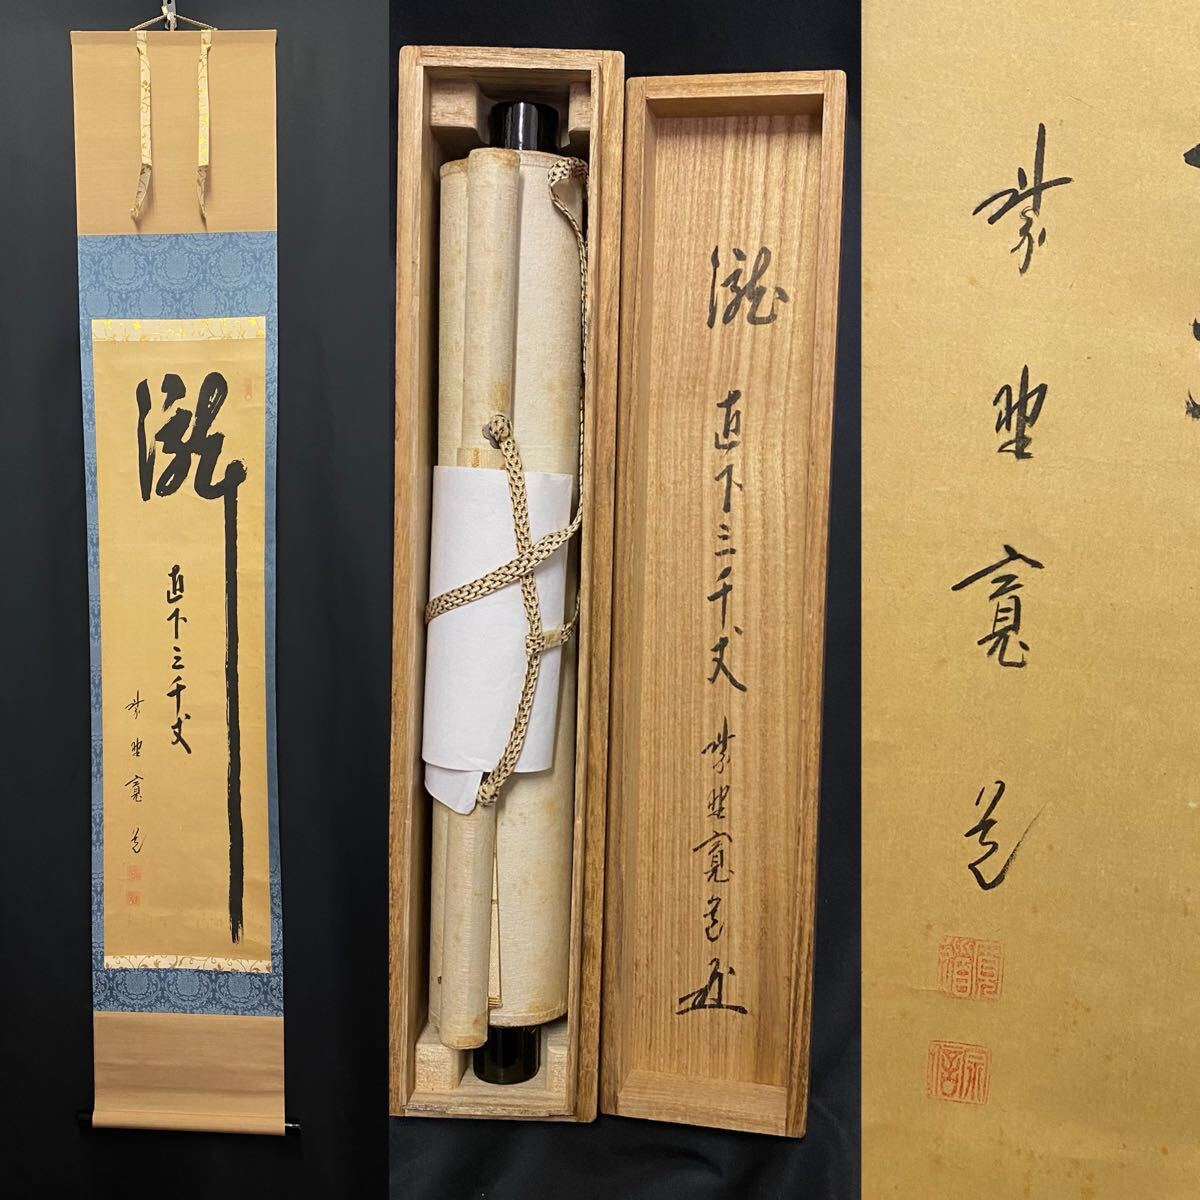 瀧
直下三千丈
紫野寛道
瀧
直下三千丈
紫野寛道
紫野寛道
寛道
宗信